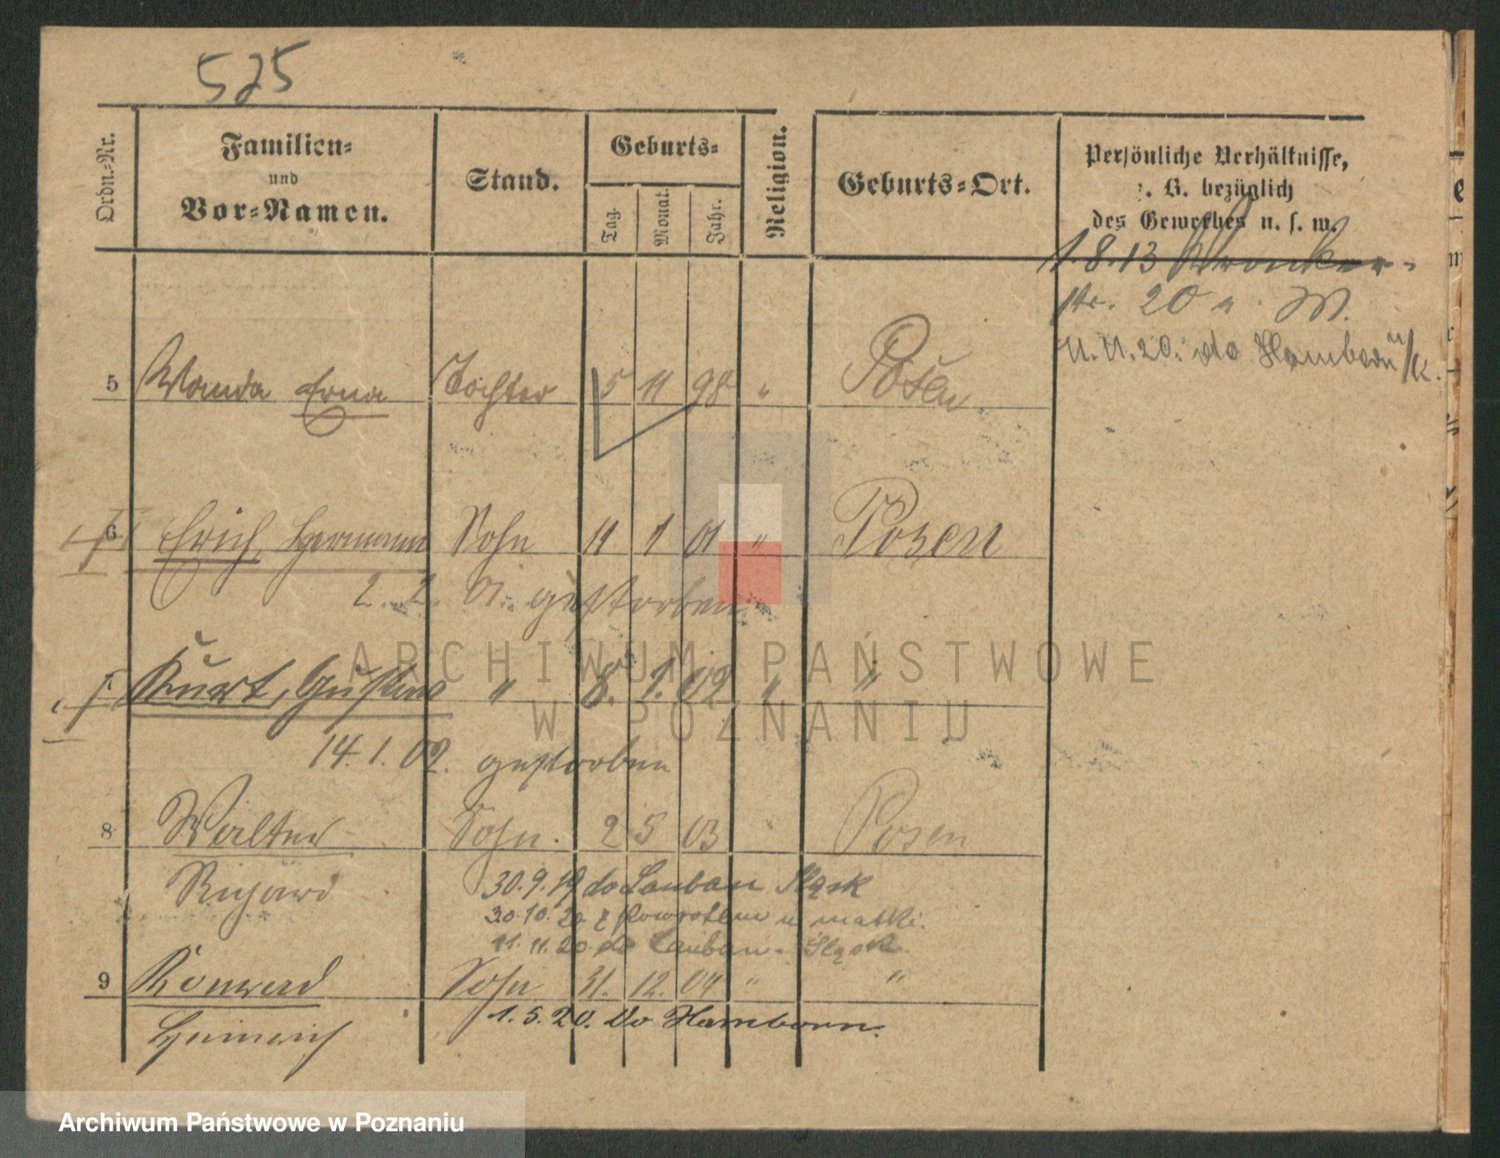 525
Ordn.-Nr.
Familien-
und
Vor-Namen.
Stand.
Geburts-
Tag.
Monat.
Jahr.
Religion.
Geburts-Ort.
Persönliche Verhältnisse,
z. B. bezüglich
des Gewerbes u. s. w.
1.8.13 Wronker-
str. 20 a. W.
11.11.20. do Hamborn
5 Wanda Erna Tochter 5 11 98 " Posen
6 Erich Hermann Sohn 11 1 01 " Posen
2. 2. 01. gestorben
Kurt, Gustav " 8. 1. 02 " "
14. 1. 02. gestorben
8 Walter Sohn. 2 5 03 Posen
Richard
30.9.19 do Lauban Śląsk
30.10.20 z powrotem u matki.
11.11.20 do Lauban - Śląsk.
9 Konrad Sohn 31. 12. 04 " "
Heinrich
1.5.20. do Hamborn.
ARCHIWUM PAŃSTWOWE
W POZNANIU
Archiwum Państwowe w Poznaniu